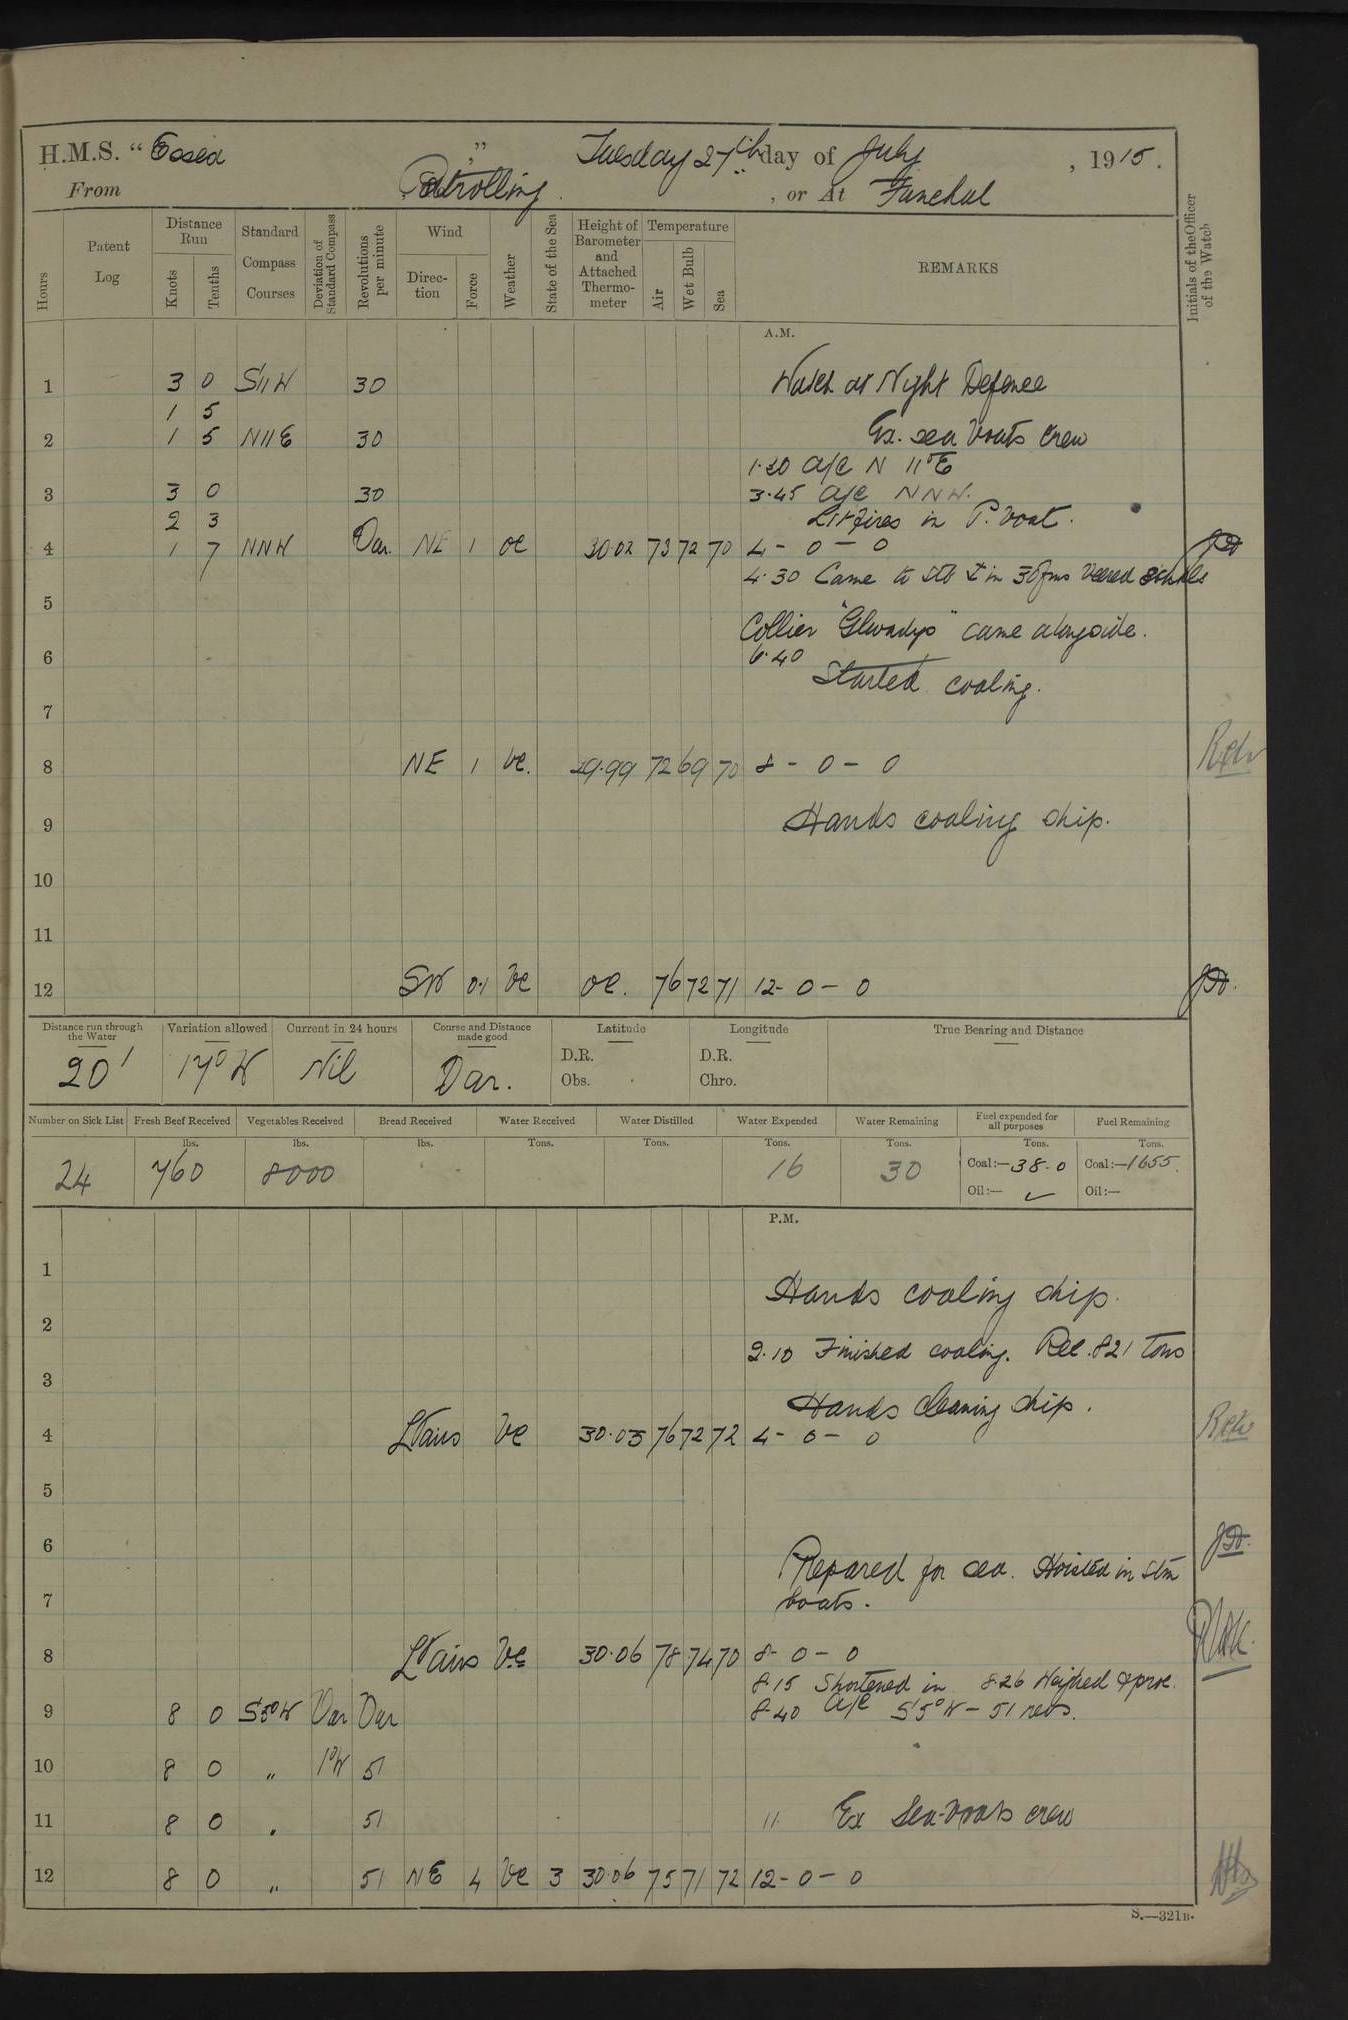 H.M.S. “ Essex ” Tuesday 27th day of July , 1915 .
From Patrolling , or At Funchal
Hours
Patent Log
Distance Run
Knots
Tenths
Standard Compass Courses
Deviation of Standard Compass
Revolutions per minute
Wind
Direction
Force
Weather
State of the Sea
Height of Barometer and Attached Thermometer
Temperature
Air
Wet Bulb
Sea
REMARKS
Initials of the Officer of the Watch
A.M.
1 3 0 S11W 30 Watch at Night Defence
1 5
2 1 5 N11E 30 Ex. sea boats crew
1.30 a/c N 11°E
3 3 0 30 3.45 a/c NNW.
2 3 Lit fires in P. boat.
4 1 7 NNW Var. NE 1 oc 30.02 73 72 70 4 - 0 - 0
4.30 Came to Stb in
5
Collier "Glwadys" came alongside.
6 6.40
Started coaling.
7
8 NE 1 bc. 29.99 72 69 70 8 - 0 - 0
9 Hands coaling ship.
10
11
12 SW 0.1 bc 76 72 71 12 - 0 - 0
Distance run through the Water
20'
Variation allowed
17° W
Current in 24 hours
Nil
Course and Distance made good
Var.
Latitude
D.R.
Obs.
Longitude
D.R.
Chro.
True Bearing and Distance
Number on Sick List
24
Fresh Beef Received
lbs.
760
Vegetables Received
lbs.
8000
Bread Received
lbs.
Water Received
Tons.
Water Distilled
Tons.
Water Expended
Tons.
16
Water Remaining
Tons.
30
Fuel expended for all purposes
Tons.
Coal:—38.0
Oil:— ✓
Fuel Remaining
Tons.
Coal:—1655.
Oil:—
P.M.
1
Hands coaling ship.
2
2.10 Finished coaling. Rec. 821 Tons
3
Hands cleaning ship.
4 Lt airs bc 30.03 76 72 72 4 - 0 - 0
5
6
Prepared for sea. Hoisted in stm
7 boats.
8 Lt airs bc 30.06 78 74 70 8 - 0 - 0
8.15 Shortened in 8.26 Weighed & proc.
9 8 0 S5°W Var Var 8.40 a/c S5°W - 51 revs.
10 8 0 " 1°W 51
11 8 0 " 51 11 Ex Sea-boats crew
12 8 0 " 51 NE 4 bc 3 30.06 75 71 72 12 - 0 - 0
S.—321B.